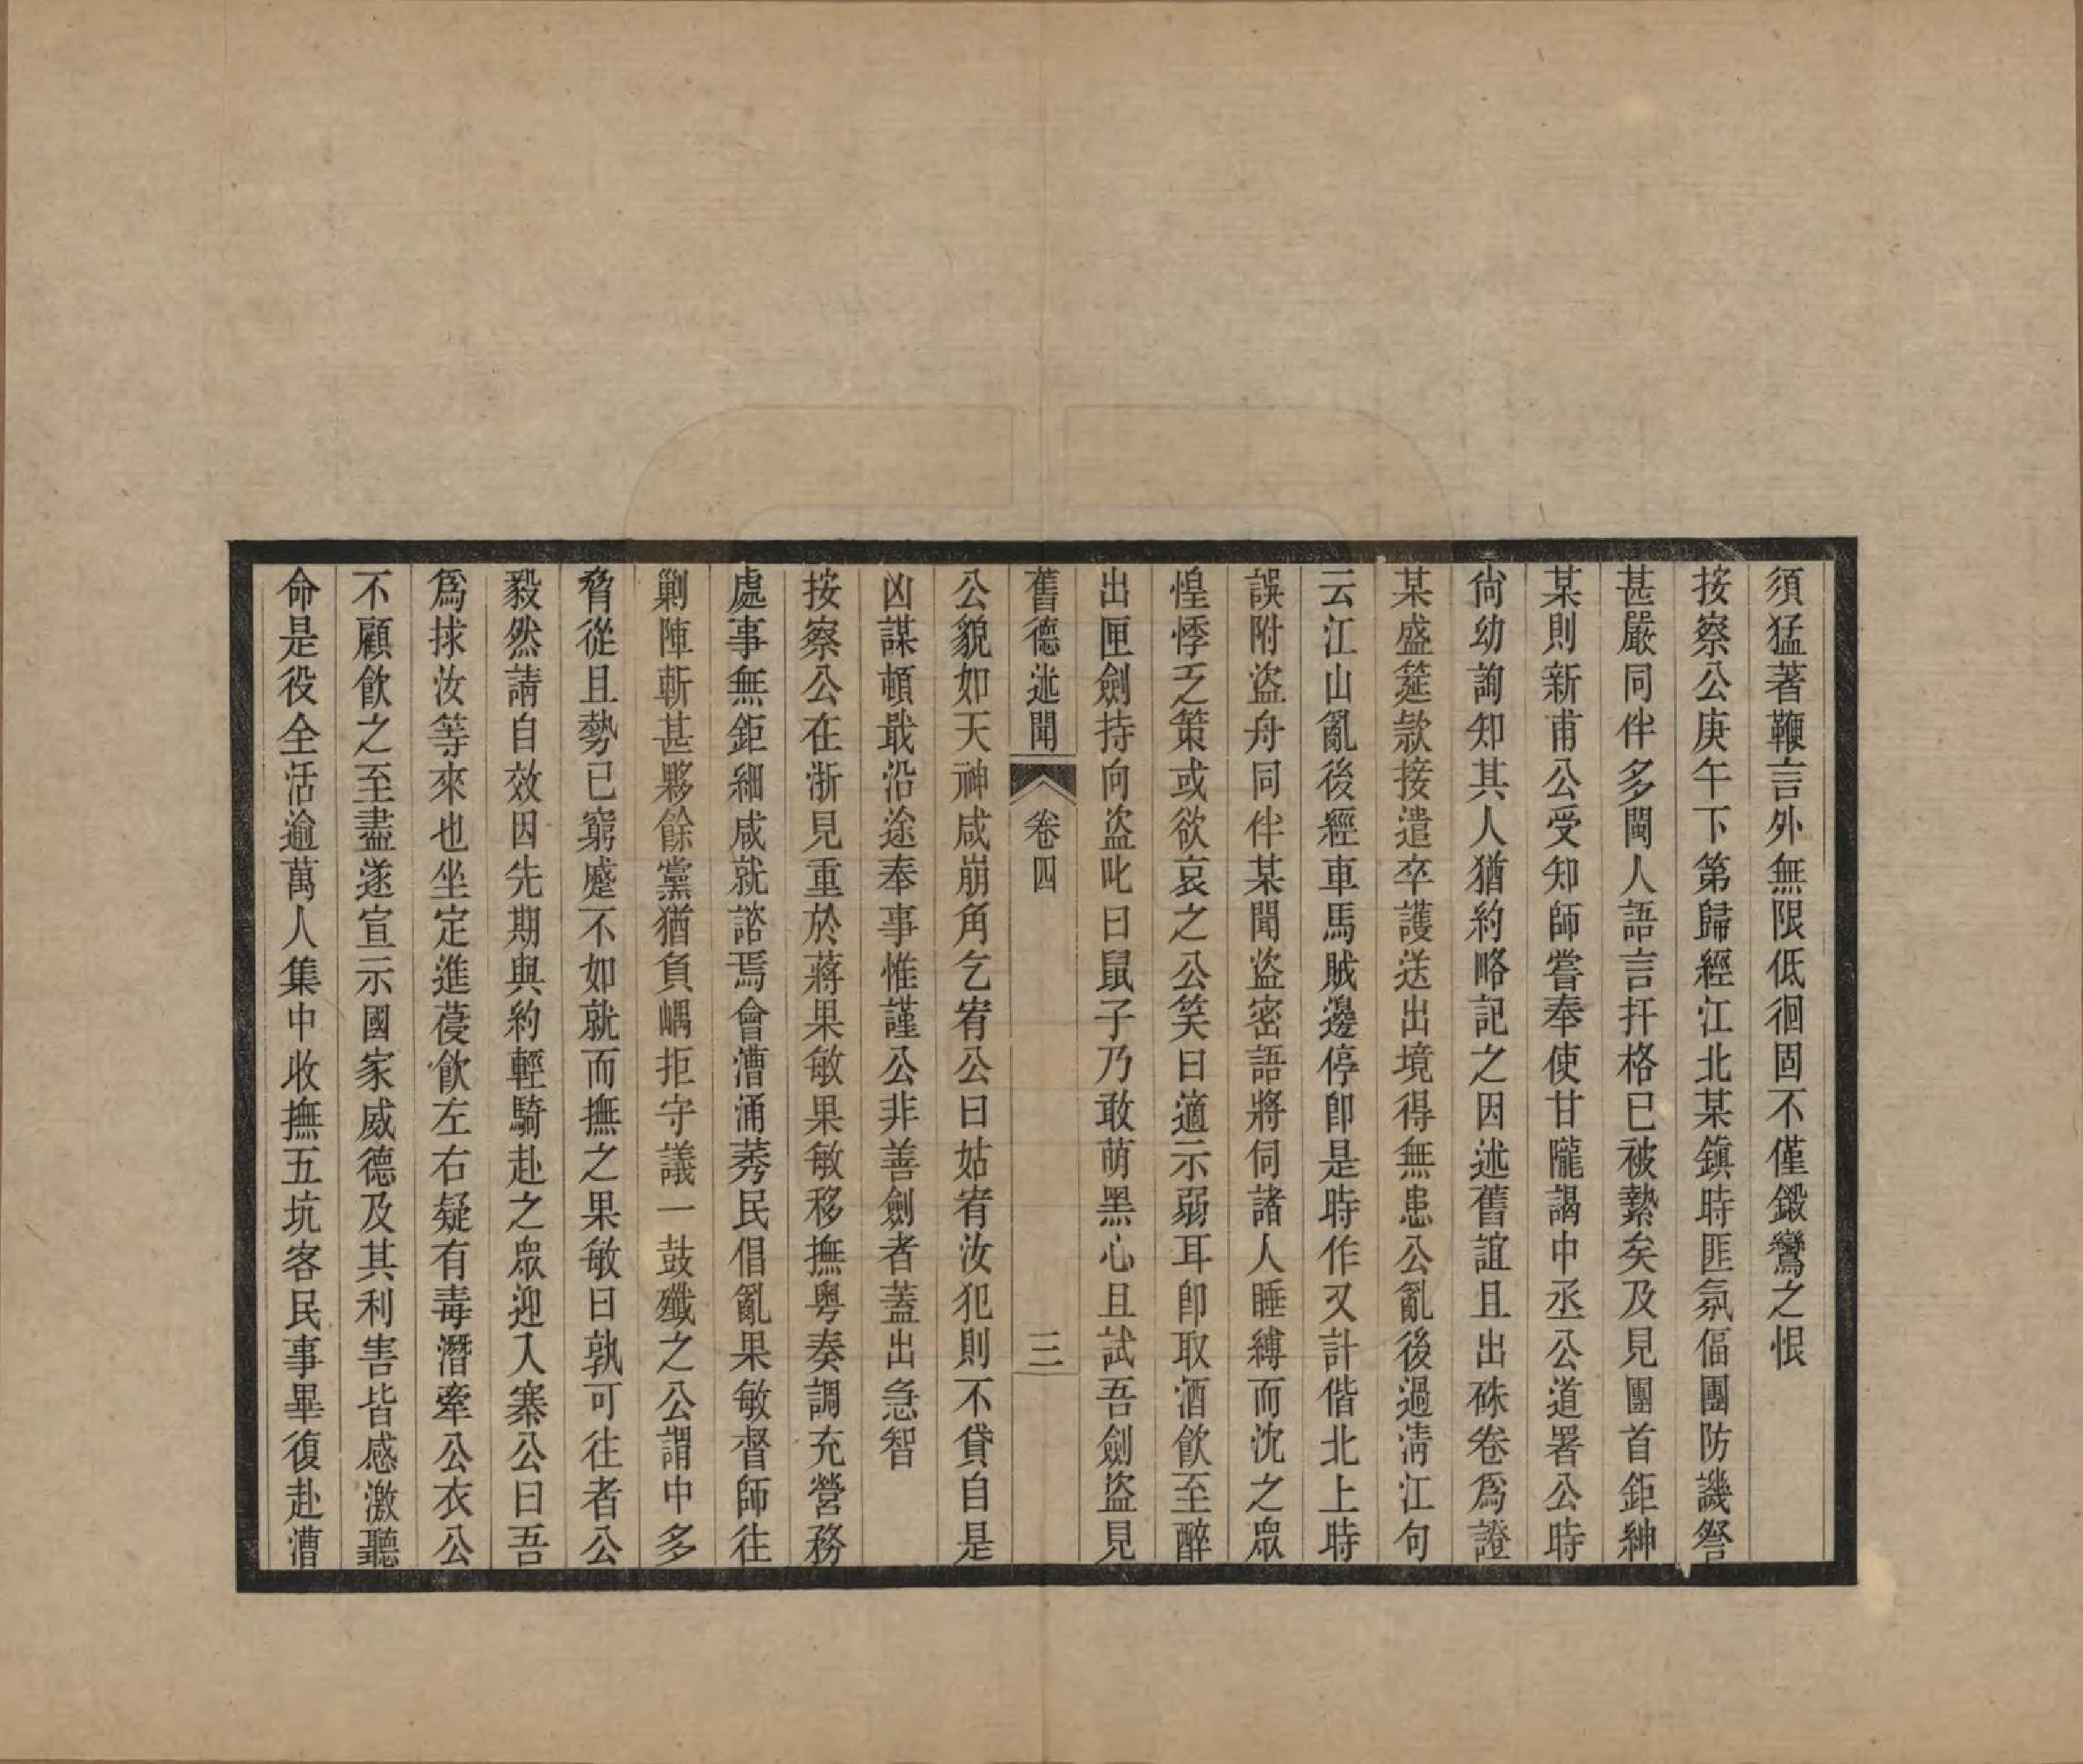 須猛著鞭言外無限低徊固不僅鎩鸞之恨
按察公庚午下第歸經江北某鎮時匪氛偪團防譏詧
甚嚴同伴多閩人語言扞格已被縶矣及見團首鉅紳
某則新甫公受知師嘗奉使甘隴謁中丞公道署公時
尙幼詢知其人猶約略記之因述舊誼且出硃卷爲證
某盛筵款接遣卒護送出境得無患公亂後過淸江句
云江山亂後經車馬賊邊停卽是時作又計偕北上時
誤附盜舟同伴某聞盜密語將伺諸人睡縛而沈之眾
惶悸乏策或欲哀之公笑曰適示弱耳卽取酒飮至醉
出匣劍持向盜叱曰鼠子乃敢萌黑心且試吾劍盜見
舊德述聞 卷四 三
公貌如天神咸崩角乞宥公曰姑宥汝犯則不貸自是
凶謀頓戢沿途奉事惟謹公非善劍者蓋出急智
按察公在浙見重於蔣果敏果敏移撫粵奏調充營務
處事無鉅細咸就諮焉會漕涌莠民倡亂果敏督師往
剿陣斬甚夥餘黨猶負嵎拒守議一鼓殲之公謂中多
脅從且勢已窮蹙不如就而撫之果敏曰孰可往者公
毅然請自效因先期與約輕騎赴之眾迎入寨公曰吾
爲捄汝等來也坐定進蔆飮左右疑有毒潛牽公衣公
不顧飮之至盡遂宣示國家威德及其利害皆感激聽
命是役全活逾萬人集中收撫五坑客民事畢復赴漕